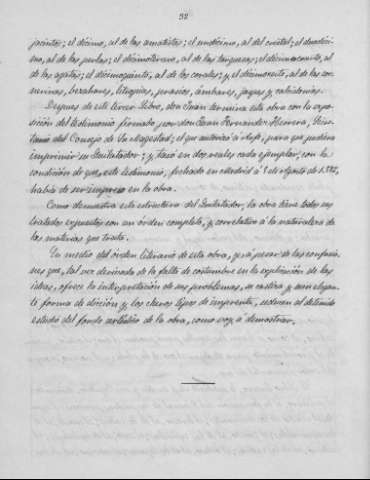 32
jacintos; el décimo, al de las amatistas; el undécimo, al del cristal; el duodéci-
mo, al de las perlas; el décimotercero, al de las turquesas; el décimocuarto, al
de las agatas; el décimoquinto, al de los corales; y el décimosexto, al de las cor-
nerinas, bezahares, liloquias, prasios, ámbares, jaspes y calcidonias.
Despues de este tercer Libro, don Juan termina esta obra con la expo-
sición del testimonio firmado por don Juan Fernandez Herrera, Secre-
tario del Consejo de la Magestad; el que autorizó á Arfe, para que pudiera
imprimir su Quilatador; y tasó en dos reales cada ejemplar; con la
condición de que, este testimonio, fechado en Madrid á 8 de Agosto de
había de ser impreso en la obra.
Como demuestra esta estructura del Quilatador, la obra tiene todos sus
tratados expuestos con un órden completo, y correlativo á la naturaleza de
las materias que trata.
En medio del órden literario de esta obra, y á pesar de las confusio-
nes que, tal vez derivadas de la falta de costumbre en la explicación de las
ideas, ofrece la interpretación de sus problemas, su castiza y aun elegan-
te forma de dicción y los claros tipos de imprenta, seducen al detenido
estudio del fondo artístico de la obra, como voy á demostrar.